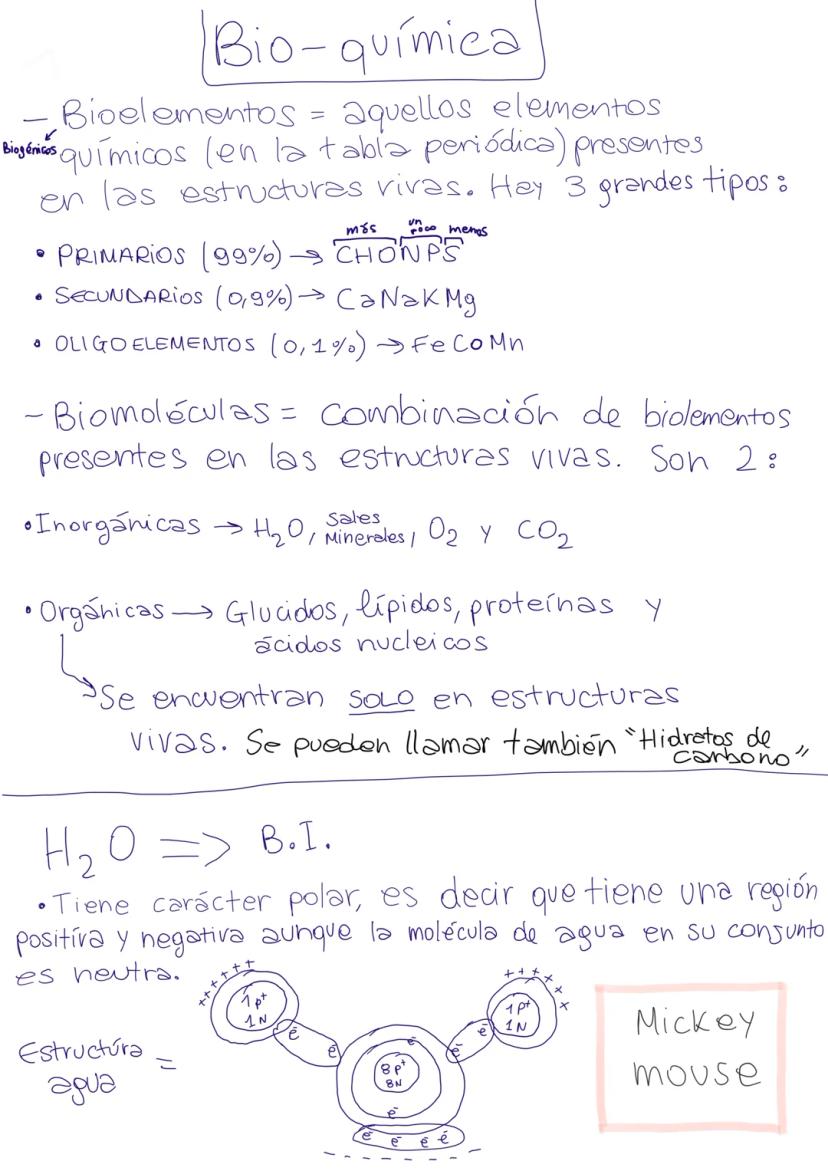 Bio-química
- Bioelementos = aquellos elementos
Biogénicos químicos (en la tabla periódica) presentes
en las estructuras vivas. Hay 3 grandes tipos:
más un poco menos
• PRIMARIOS (99%) → CHONPS
• SECUNDARIOS (0,9%) → CaNaKMg
• OLIGOELEMENTOS (0,1%) → FeCoMn
- Biomoléculas = combinación de biolementos
presentes en las estructuras vivas. Son 2:
• Inorgánicas → H₂O, Sales Minerales, O₂ y CO₂
• Orgánicas → Glucidos, lípidos, proteínas y
ácidos nucleicos
Se encuentran SOLO en estructuras
vivas. Se pueden llamar también "Hidratos de carbono"
H₂O => B.I.
• Tiene carácter polar, es decir que tiene una región
positiva y negativa aunque la molécula de agua en su conjunto
es neutra.
++++++ ++++++
1p⁺ 1p⁺
1N 1N
e⁻ e⁻ e⁻ e⁻ e⁻
Estructúra agua =
8p⁺
8N
e⁻
e⁻ e⁻ e⁻ e⁻
- - - - - - -
Mickey
mouse